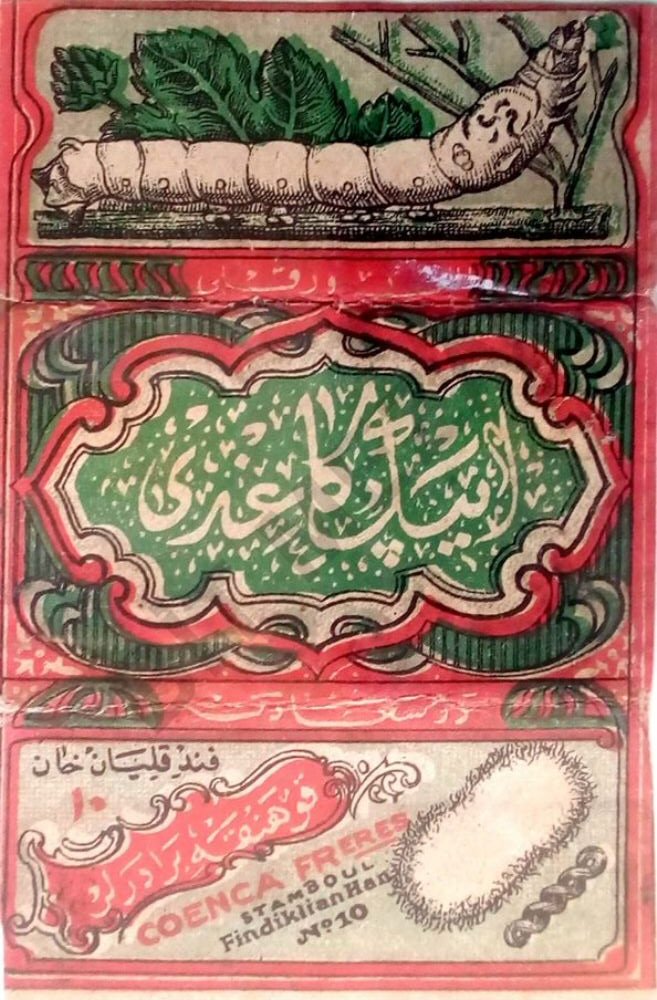 ورقلى
ايپك كاغدى
در سعادت
فندقليان خان
١٠
قوهنقه برادرلر
COENCA FRERES
STAMBOUL
Findiklian Han
Nº 10